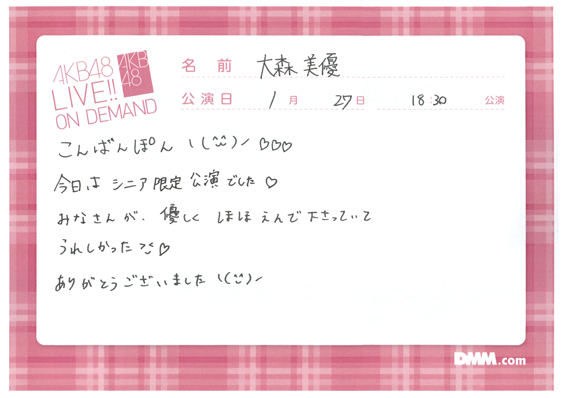 AKB48
LIVE!!
ON DEMAND
AKB
48
名前 大森美優
公演日 1月 27日 18:30 公演
こんばんぽん \(^^)/ ♡♡♡
今日は シニア限定公演でした ♡
みなさんが、優しく ほほえんで下さっていて
うれしかった ^^ ♡
ありがとうございました \(^^)/
DMM.com